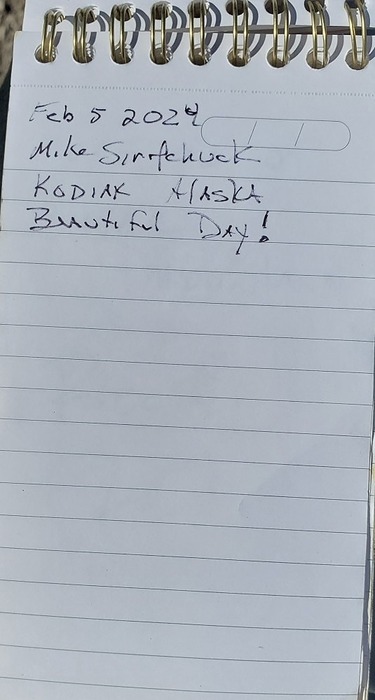 Feb 5 2024
Mike
KODIAK AlASKA
BEAUtiful DAY!